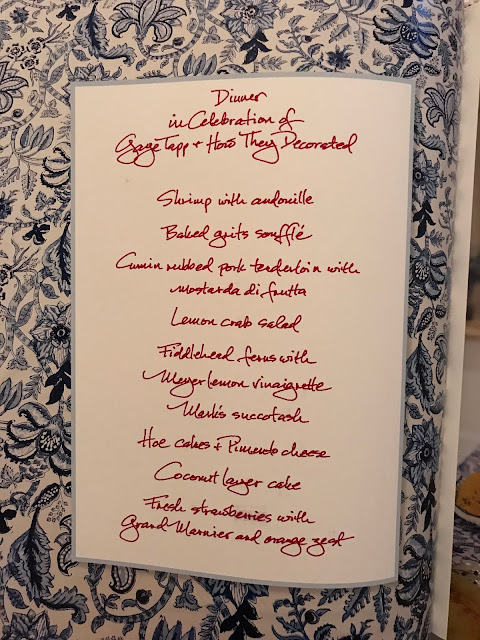 Dinner
in Celebration of
Gaye Tapp + How They Decorated
Shrimp with andouille
Baked grits soufflé
Cumin rubbed pork tenderloin with
mostarda di frutta
Lemon crab salad
Fiddlehead ferns with
Meyer lemon vinaigrette
Mark's succotash
Hoe cakes + Pimento cheese
Coconut layer cake
Fresh strawberries with
Grand Marnier and orange zest